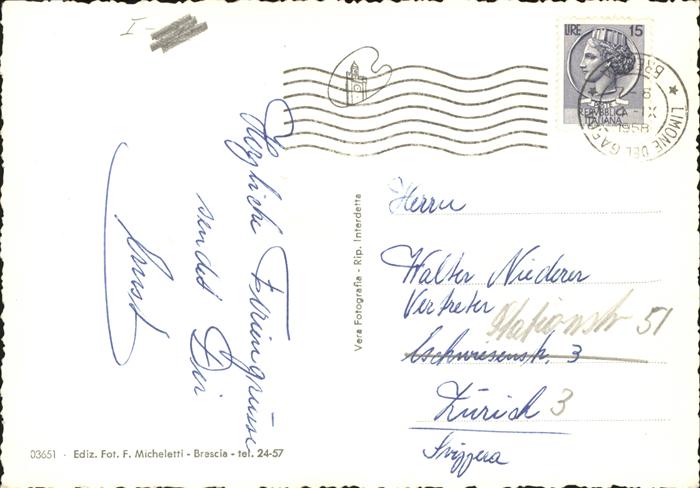 I -
LIRE 15
POSTE
REPVBBLICA
ITALIANA
LIMONE DEL GARDA
1958
Herzliche Feriengrüsse
sendet Dir
Ernst
Vera Fotografia - Rip. Interdetta
Herrn
Walter Niederer
Vertreter
Stationsstr 51
Eschwiesenstr. 3
Zürich 3
Svizzera
03651 - Ediz. Fot. F. Micheletti - Brescia - tel. 24-57